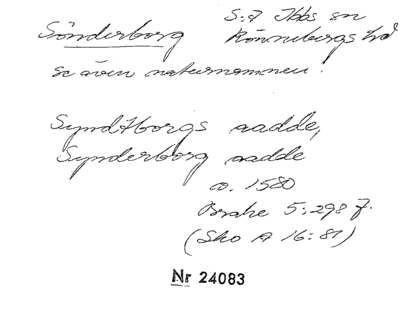 Sönderborg S:a Ibbs sn
Rönnebergs hd
se även naturnamnen!
Syndborgs aadde,
Synderborg aadde
o. 1580
Brahe 5:298 f.
(Sko A 16:81)
Nr 24083